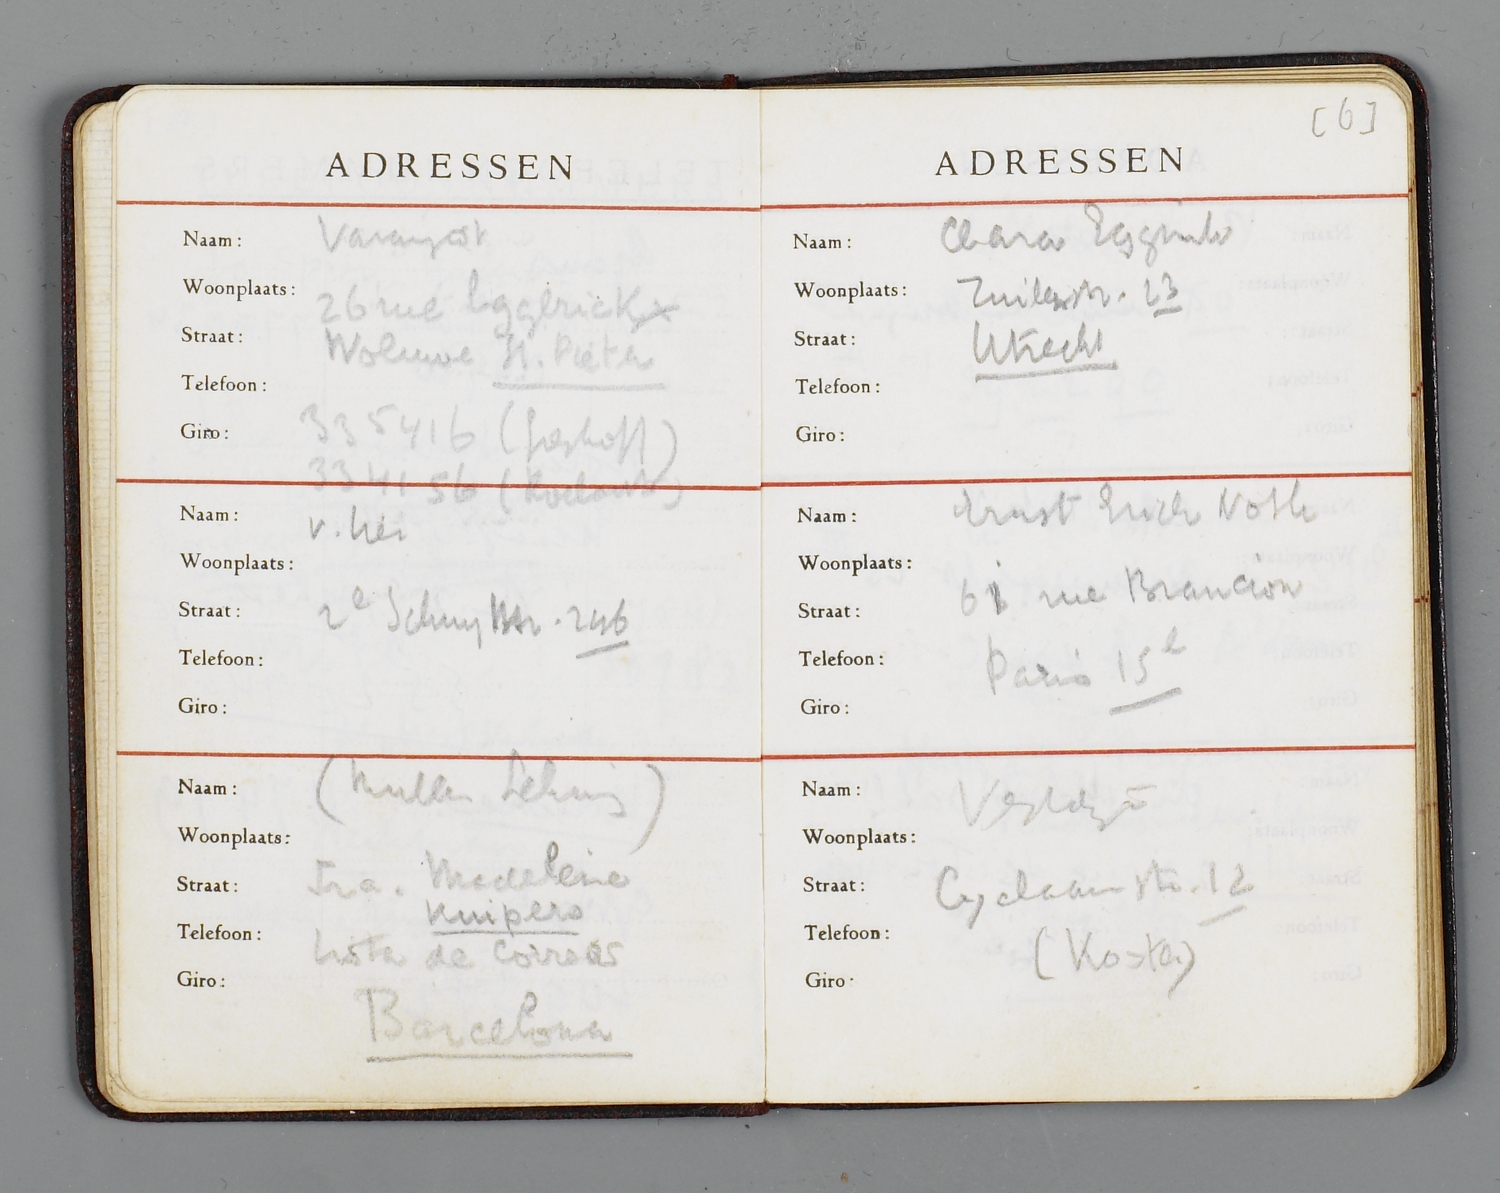 ADRESSEN
Naam: Varangot
Woonplaats:
26 rue Eggerickx
Straat:
Woluwe St. Pieter
Telefoon:
Giro: 335416 (Greshoff)
334156 (Roelants)
Naam:
v. Nei
Woonplaats:
Straat: 2e Schuytstr. 246
Telefoon:
Giro:
Naam: (Muller Lehning)
Woonplaats:
Straat: Fra. Madeleine
Kuipers
Telefoon:
Lista de Correos
Giro:
Barcelona
[6]
ADRESSEN
Naam: Clara Eggink
Woonplaats: Zuilenstr. 23
Straat: Utrecht
Telefoon:
Giro:
Naam: Ernst Erich Noth
Woonplaats:
Straat: 61 rue Brancion
Telefoon: Paris 15e
Giro:
Naam:
Woonplaats:
Straat: Cyclaamstr. 12
Telefoon:
(Koster)
Giro